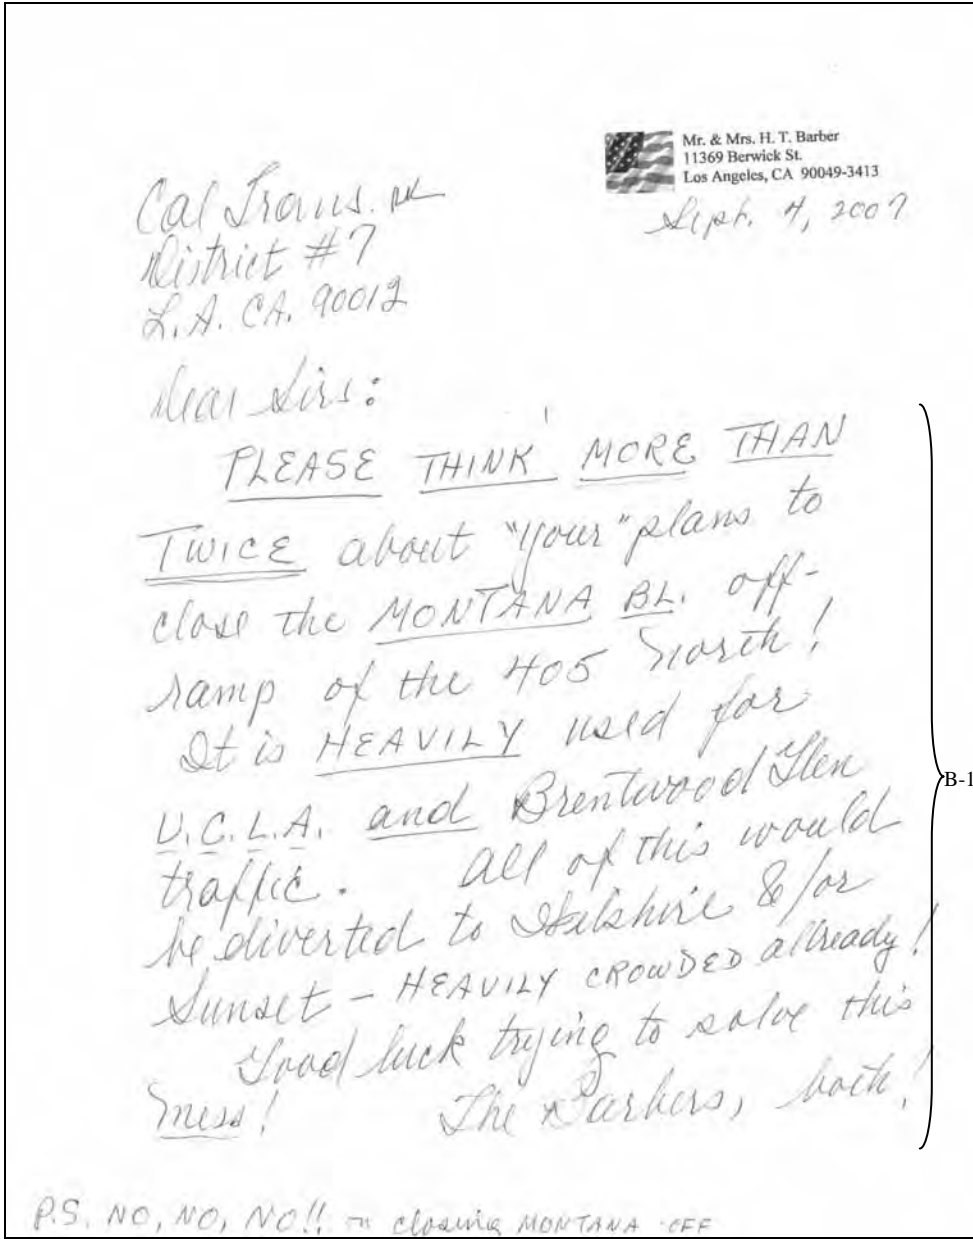 Mr. & Mrs. H. T. Barber
11369 Berwick St.
Los Angeles, CA 90049-3413
Sept. 4, 2007
Cal Trans.
District #7
L.A. CA. 90012
Dear Sirs:
PLEASE THINK MORE THAN
TWICE about "your" plans to
close the MONTANA BL. off-
ramp of the 405 North!
It is HEAVILY used for
U.C.L.A. and Brentwood Glen
traffic. All of this would
be diverted to Wilshire &/or
Sunset - HEAVILY CROWDED allready!
Good luck trying to solve this
mess! The Barbers, both!
B-1
P.S. NO, NO, NO!! on closing MONTANA OFF